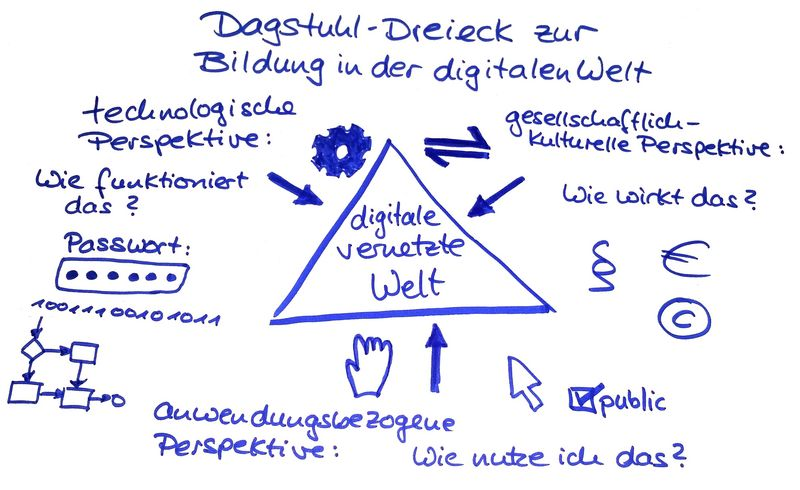 Dagstuhl-Dreieck zur
Bildung in der digitalen Welt
technologische
Perspektive:
Wie funktioniert
das?
Passwort:
10011100101011
gesellschaftlich-
kulturelle Perspektive:
Wie wirkt das?
§ €
©
digitale
vernetzte
Welt
public
anwendungsbezogene
Perspektive:
Wie nutze ich das?